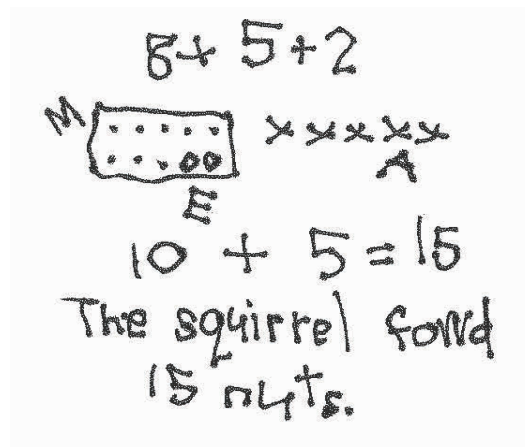 8+ 5+2
M
A
E
10 + 5=15
The squirrel fownd
15 nuts.